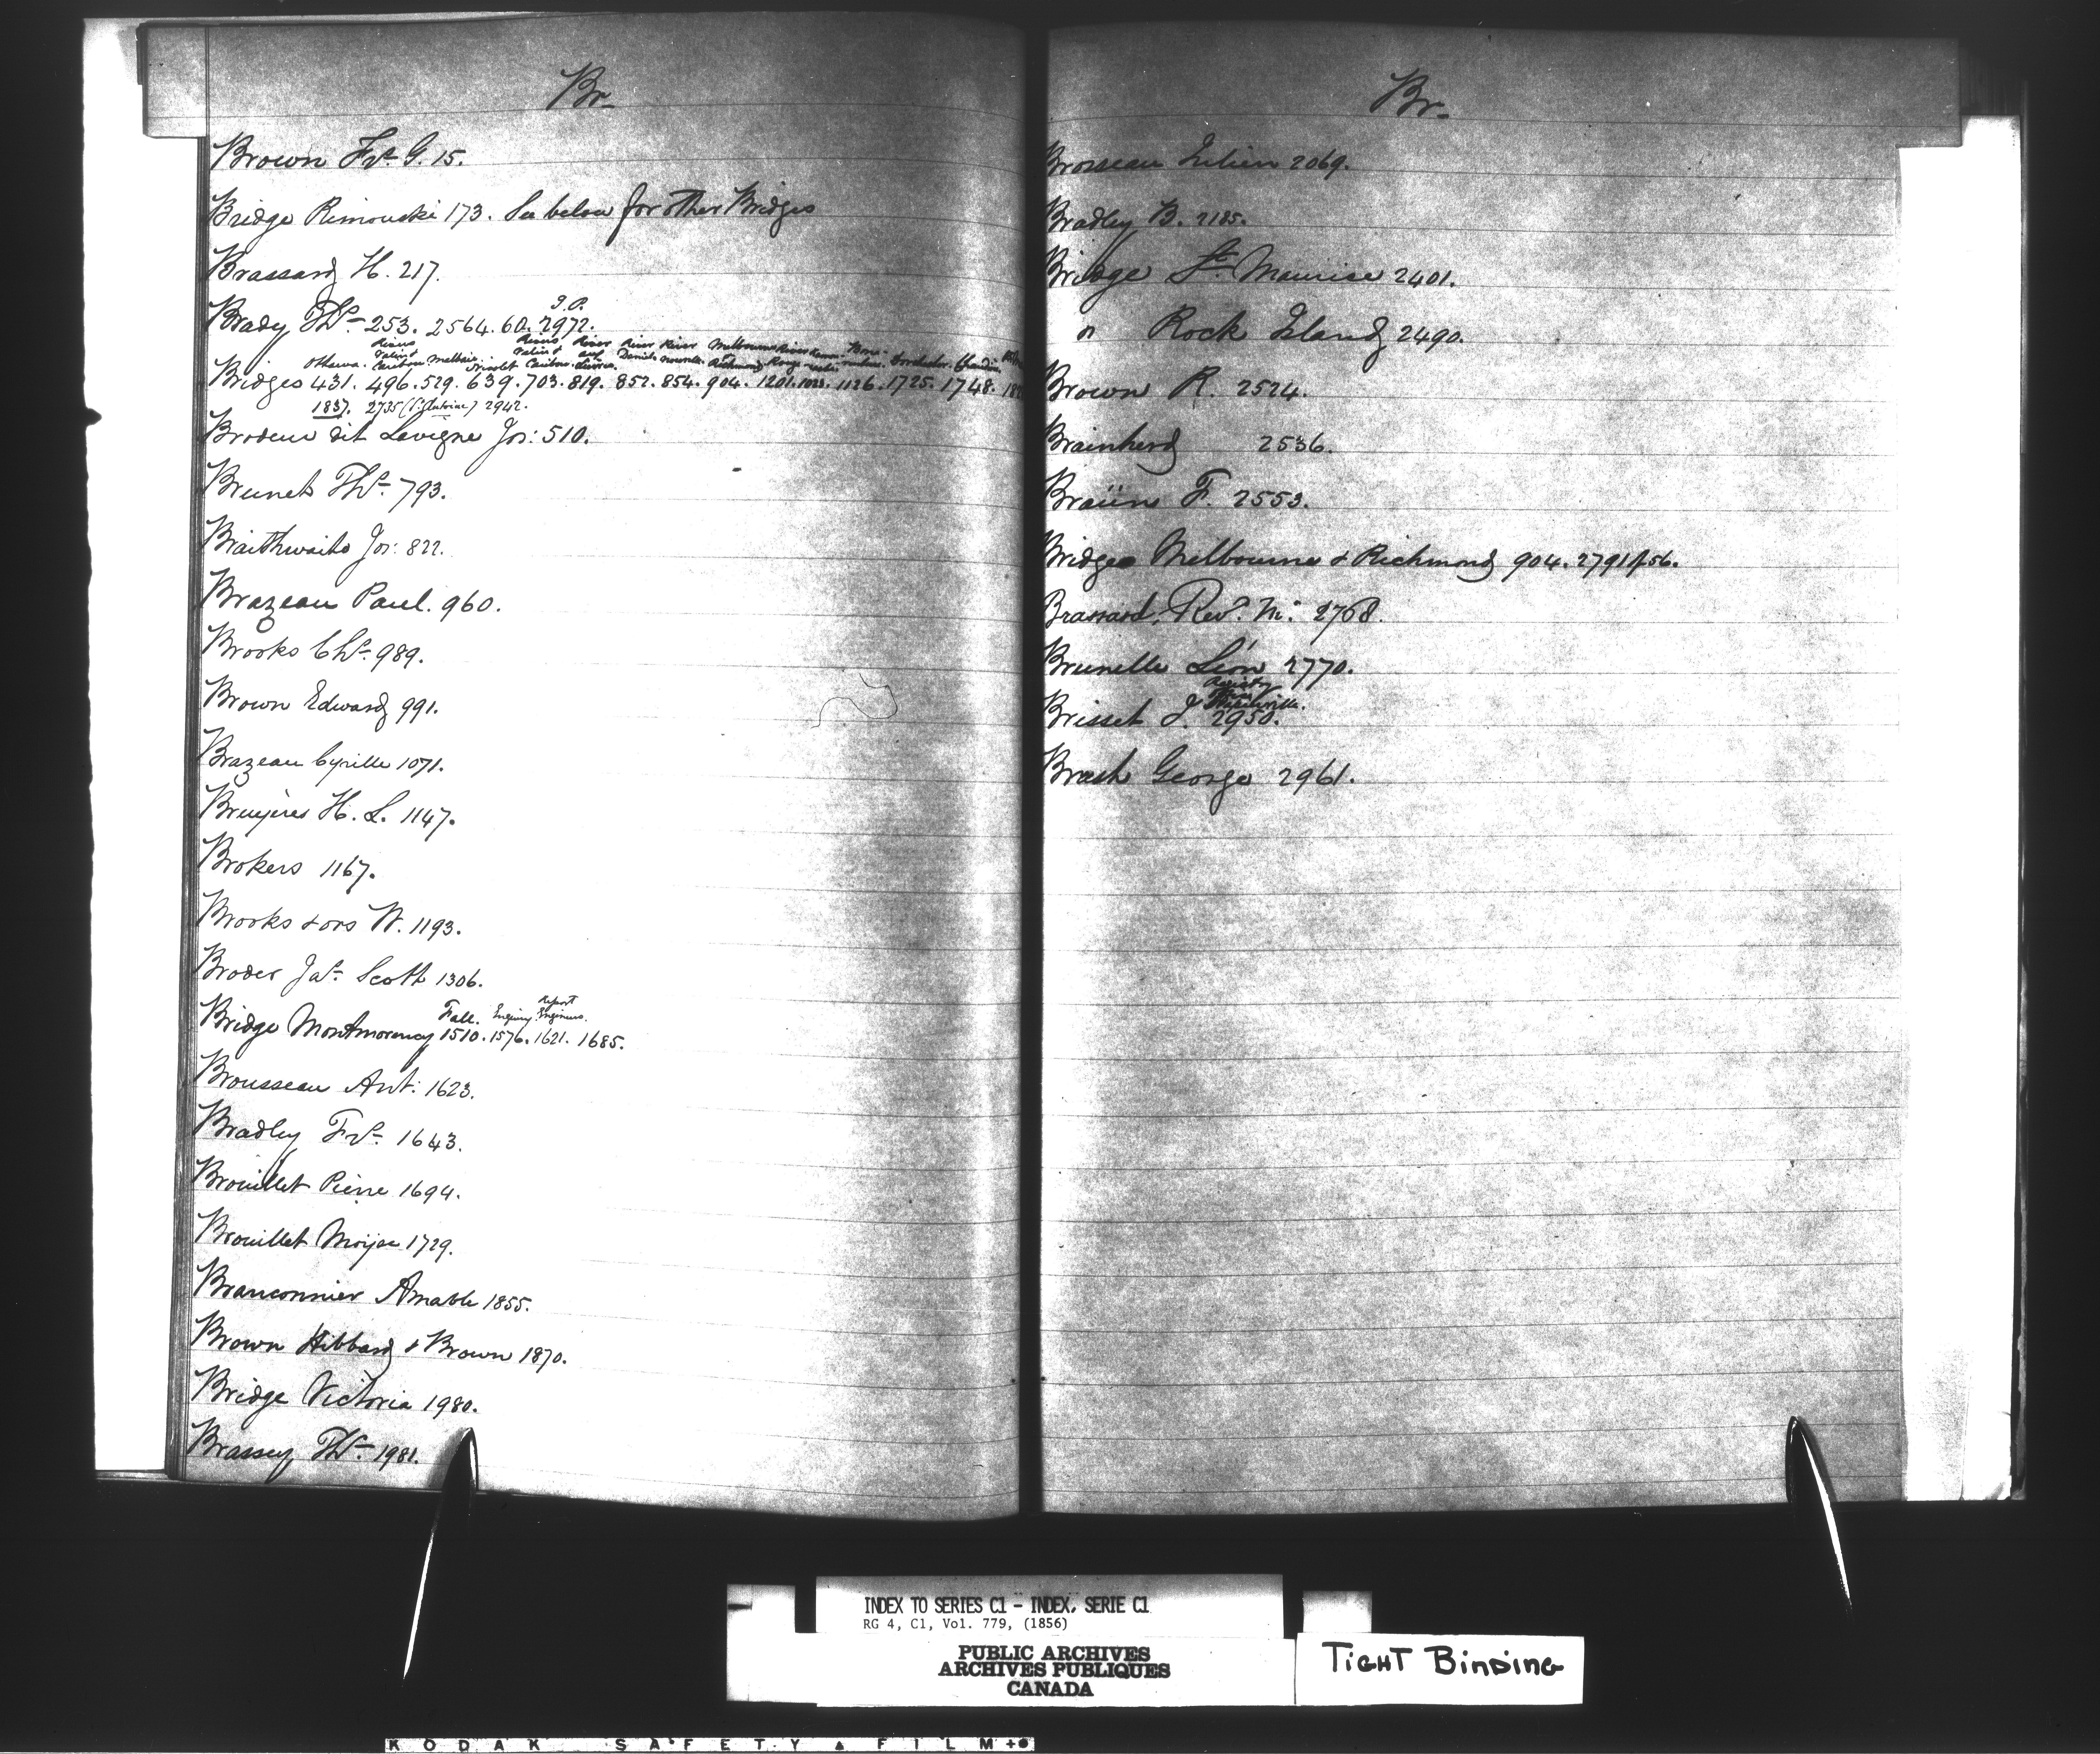 Br_
Brown Frs. G. 15.
Bridge Rimouski 173. See below for other Bridges
Brassard H. 217.
J. P.
Brady Ths. 253. 2564. 60. 2972.
Ottawa. Caribou. Malbaie. Nicolet
Bridges 431. 496. 529. 639. 703. 819. 852. 854. 904. 1201. 1023. 1126. 1725. 1748.
1837. 2735 2942.
Brodeur dit Lavigne Jos: 510.
Brunet Ths. 793.
Braithwaite Jos: 822.
Brazeau Paul. 960.
Brooks Chs. 989.
Brown Edward 991.
Brazeau Cyrille 1071.
Bruyeres H. L. 1147.
Brokers 1167.
Brooks & ors W. 1193.
Broder Jas. Scott 1306.
report
Fall. Enquiry. Engineers.
Bridge Montmorency 1510. 1576. 1621. 1685.
Brousseau Ant: 1623.
Bradley Frs. 1643.
Brouillet Pierre 1694.
Brouillet Moyse 1729.
Branconnier Amable 1855.
Brown Hibbard & Brown 1870.
Bridge Victoria 1980.
Brassey Ths. 1981.
Br_
Brosseau Julien 2069.
Bradley B. 2185.
Bridge St. Maurice 2401.
" Rock Island 2490.
Brown R. 2524.
Brainherd 2536.
Braün F. 2553.
Bridge Melbourne & Richmond 904. 2791/56.
Brassard, Revd. M: 2768.
Brunelle Léon 2770.
Registry
Brisset J. 2950.
Brash George 2961.
INDEX TO SERIES C1 - INDEX, SERIE C1
RG 4, C1, Vol. 779, (1856)
PUBLIC ARCHIVES
ARCHIVES PUBLIQUES
CANADA
TIGHT BINDING
KODAK SAFETY FILM